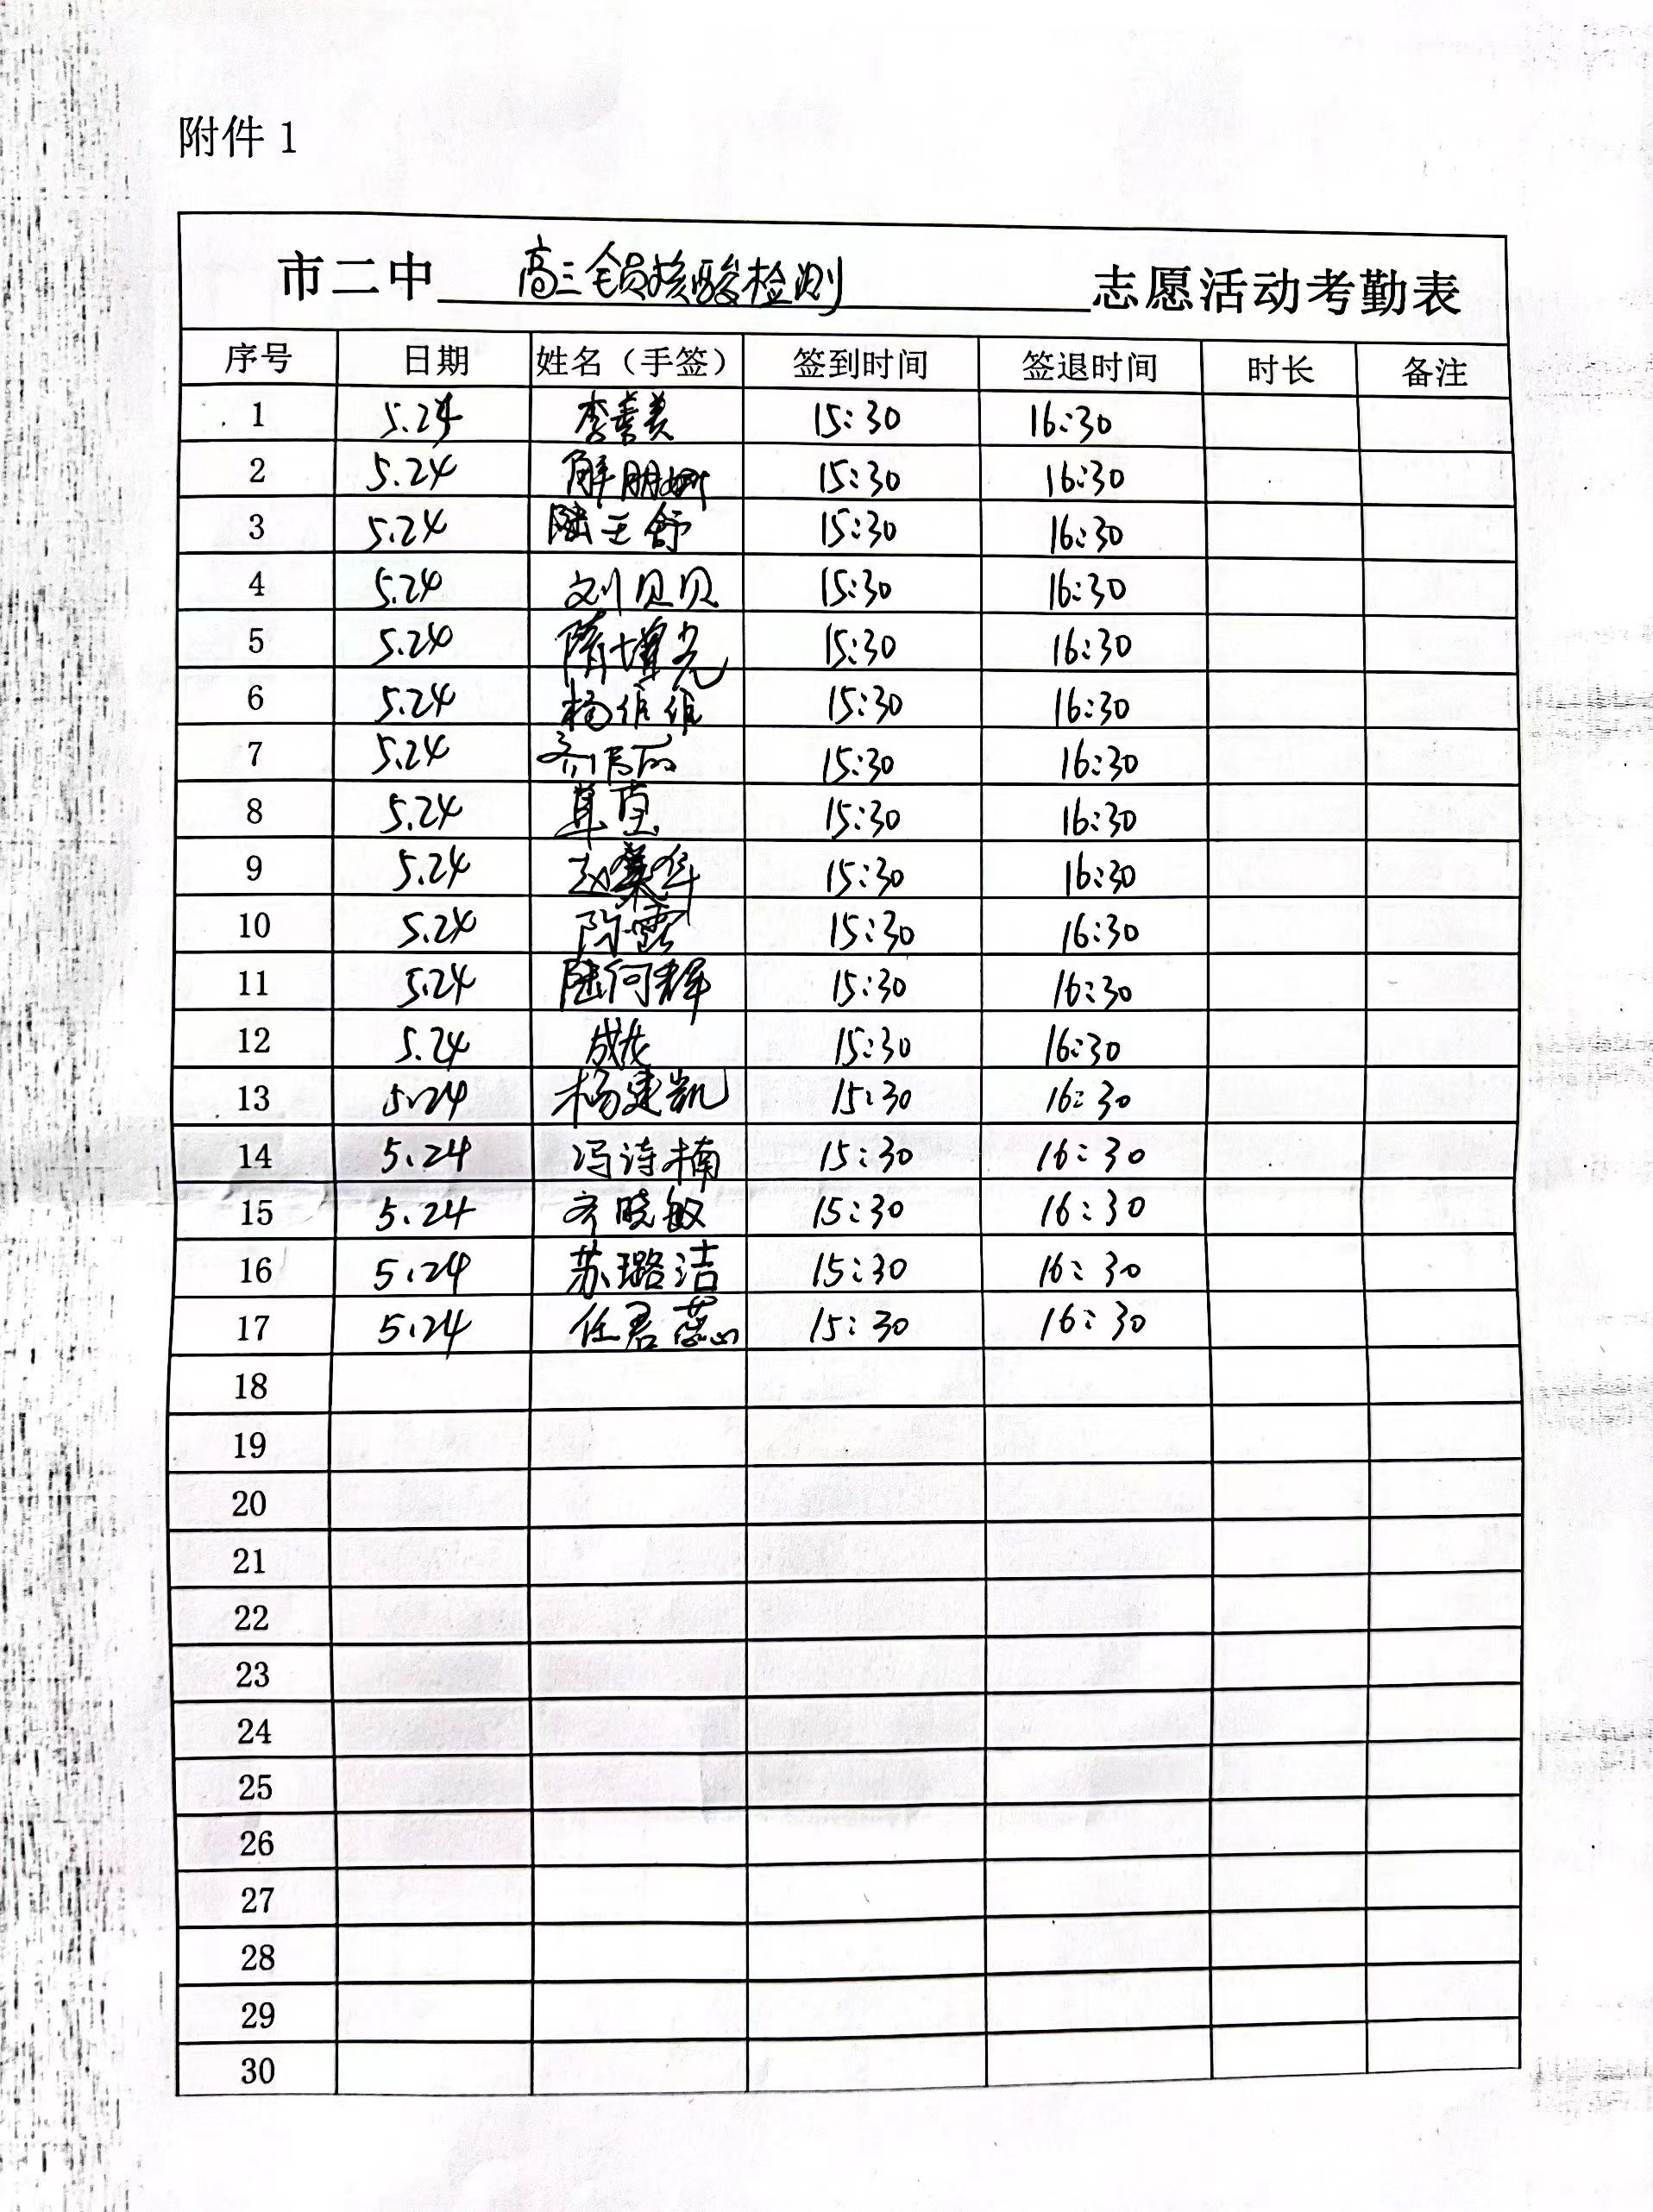 附件 1
市二中 高三全员核酸检测 志愿活动考勤表
序号 日期 姓名（手签） 签到时间 签退时间 时长 备注
1 5.24 李善美 15:30 16:30
2 5.24 解朋 15:30 16:30
3 5.24 陆王舒 15:30 16:30
4 5.24 刘贝贝 15:30 16:30
5 5.24 隋 15:30 16:30
6 5.24 杨维维 15:30 16:30
7 5.24 15:30 16:30
8 5.24 15:30 16:30
9 5.24 15:30 16:30
10 5.24 陈露 15:30 16:30
11 5.24 陆何辉 15:30 16:30
12 5.24 成龙 15:30 16:30
13 5.24 杨建凯 15:30 16:30
14 5.24 冯诗楠 15:30 16:30
15 5.24 齐晓敏 15:30 16:30
16 5.24 苏璐洁 15:30 16:30
17 5.24 任君蕊 15:30 16:30
18
19
20
21
22
23
24
25
26
27
28
29
30